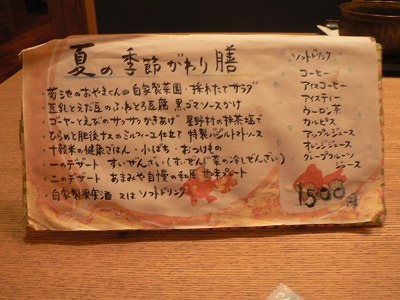 夏の季節がわり膳
・菊池のおやさいくんの自家製菜園・採れたてサラダ
・豆乳とえだ豆のふわとろ豆腐 黒ゴマソースかけ
・ゴーヤーとえびのサクサクかきあげ 星野村の抹茶塩で
・ひらめと肥後ナスのミルフィーユ仕立て 特製バジルトマトソース
・十穀米の健康ごはん・小ばち・おつけもの
・一のデザート すいぜんざい(すいぜんじ菜の冷しぜんざい)
・二のデザート あまみや自慢の和風甘味プレート
・自家製果実酒 又は ソフトドリンク
ソフトドリンク
コーヒー
アイスコーヒー
アイスティー
ウーロン茶
カルピス
アップルジュース
オレンジジュース
グレープフルーツ
ジュース
1500円